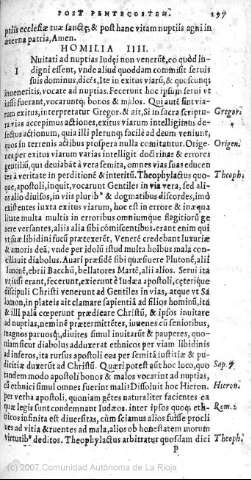 POST PENTECOSTEN. 197
ptiis ecclesiæ tuæ sanctę, & post hanc vitam nuptiis agni in
æterna patria, Amen.
HOMILIA IIII.
Nuitati ad nuptias Iudęi non venerũt, eo quòd in
digni essent, vnde aliud quoddam commisit seruis
suis dominus, dicẽs, Ite in exitus viarũ, & quoscunq;
inueneritis, vocate ad nuptias. Fecerunt hoc ipsum serui vt
iussi fuerant, vocaruntq; bonos & malos. Qui aute sint via-
rum exitus, interpretatur Gregor. & ait, Si in sacra scriptu- Gregor.
ra vias accepimus actiones, exitus viarum intelligimus de-
fectus actionum, quia illi plerunq; facilè ad deum veniunt,
quos in terrenis actibus prospera nulla comitantur. Orige- Origen.
nes per exitus viarum varias intelligit doctrinas & errores
gentiliũ, qui declabãt à vera semita, omnes vias suas educen
tes à veritate in perditionẽ & interitũ. Theophylactus quo- Theoph.
que, apostoli, inquit, vocarunt Gentiles in via vera, sed ali-
as alio diuisos, in vias plurib⁹ & dogmatibus discordes, imò
existentes iuxta exitus viarum, hoc est in errore & in aqua
litate multa multis in erroribus omniumque flagitiorũ ge
nere versantes, alii alia sibi cõmiscentibus. erant enim qui
vt suæ libidini fuco prætexerẽt, Venerẽ credebant luxuriæ
& amoris deã, vnde per idoli istud multa hostiis mala con-
ciliauit diabolus. Auari præsidẽ sibi quæsiuere Plutonẽ, alii
Iunonẽ, ebrii Bacchũ, bellatores Martẽ, alii alios. Serui ita
vt iussi erant, fecerunt, exierent è Iudæa apostoli, cęterique
discipuli Christi venerunt ad Gentiles in vias, atque vt Sa
lomon, in plateis ait clamare sapientiã ad filios hominũ, ita
& illi palã cœperunt prædicare Christũ, & ipsos inuitare
ad nuptias, neminẽ prætermittẽtes, iuuenes cũ senioribus,
magnos paruosq;, diuites simul inuitarũt & pauperes, quo-
niam sicut diabolus adduxerat ethnicos per viam libidinis
ad inferos, ita rursus apostoli eos per semitã iustitiæ & pu-
dicitiæ duxerũt ad Christũ. Quæri potest aũt hoc loco, quo Sap. 9.
tandem modo apostoli bonos & malos vocarint ad nuptias,
cũ ethnici simul omnes fuerint mali? Dissoluit hoc Hieron. Hieron.
per verba apostoli, quoniam gẽtes naturaliter facientes ea
quę legis sunt condemnant Iudæos. inter ipsos quoq; eth- Rom. 2
nicos infinita est diuersitas, cũm sciamus alios fuisse procli-
ues ad vitia & ruentes ad mala, alios ob honestatem morum
virtutib⁹ deditos. Theophylactus arbitratur quosdam dici Theoph.
P
(c) 2007. Comunidad Autónoma de La Rioja